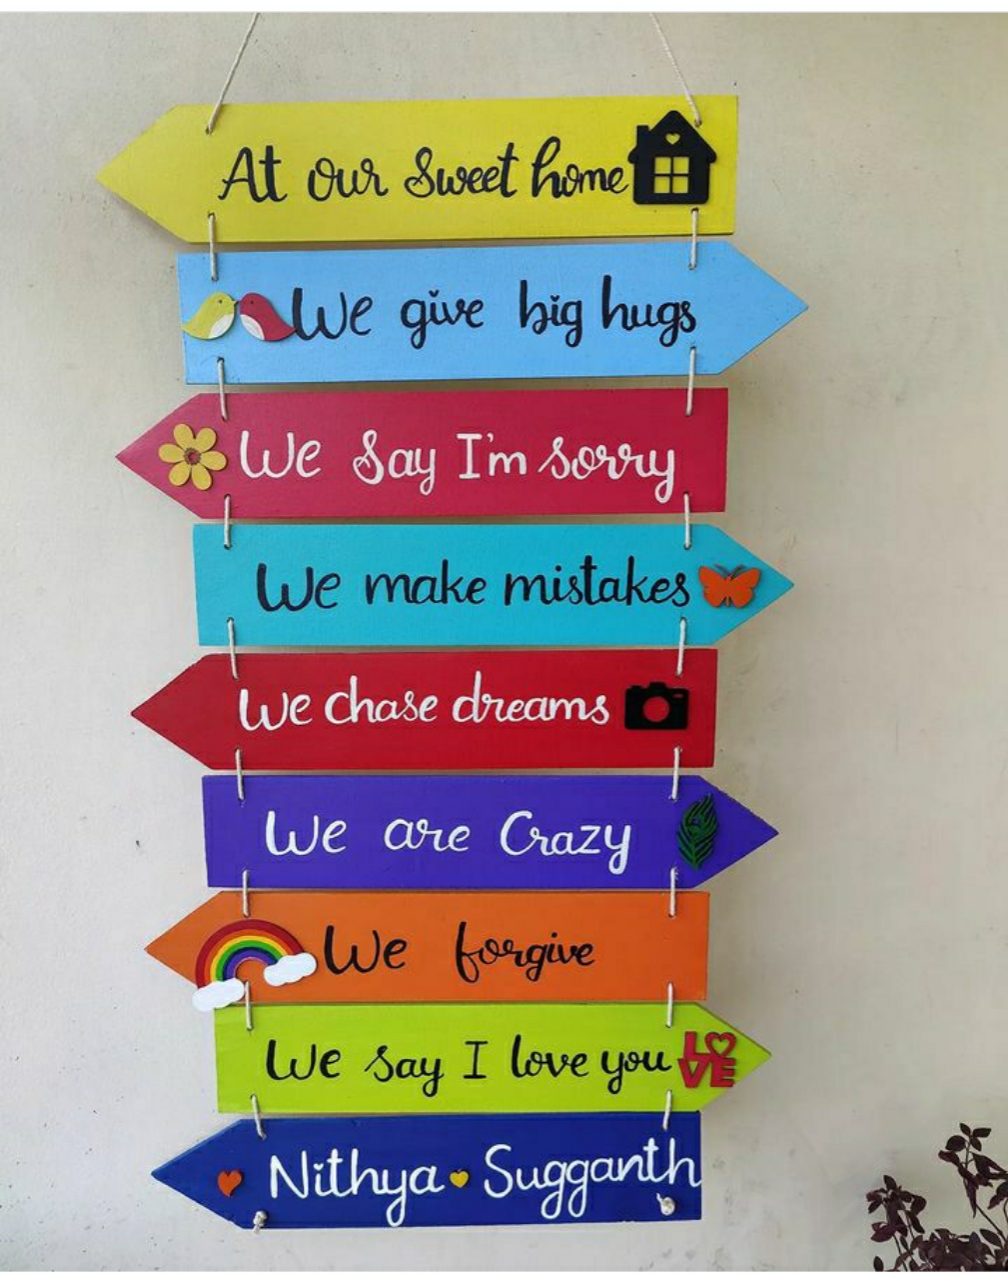 At our Sweet home
We give big hugs
We Say I'm sorry
We make mistakes
We chase dreams
We are Crazy
We forgive
We say I love you
LOVE
Nithya Sugganth